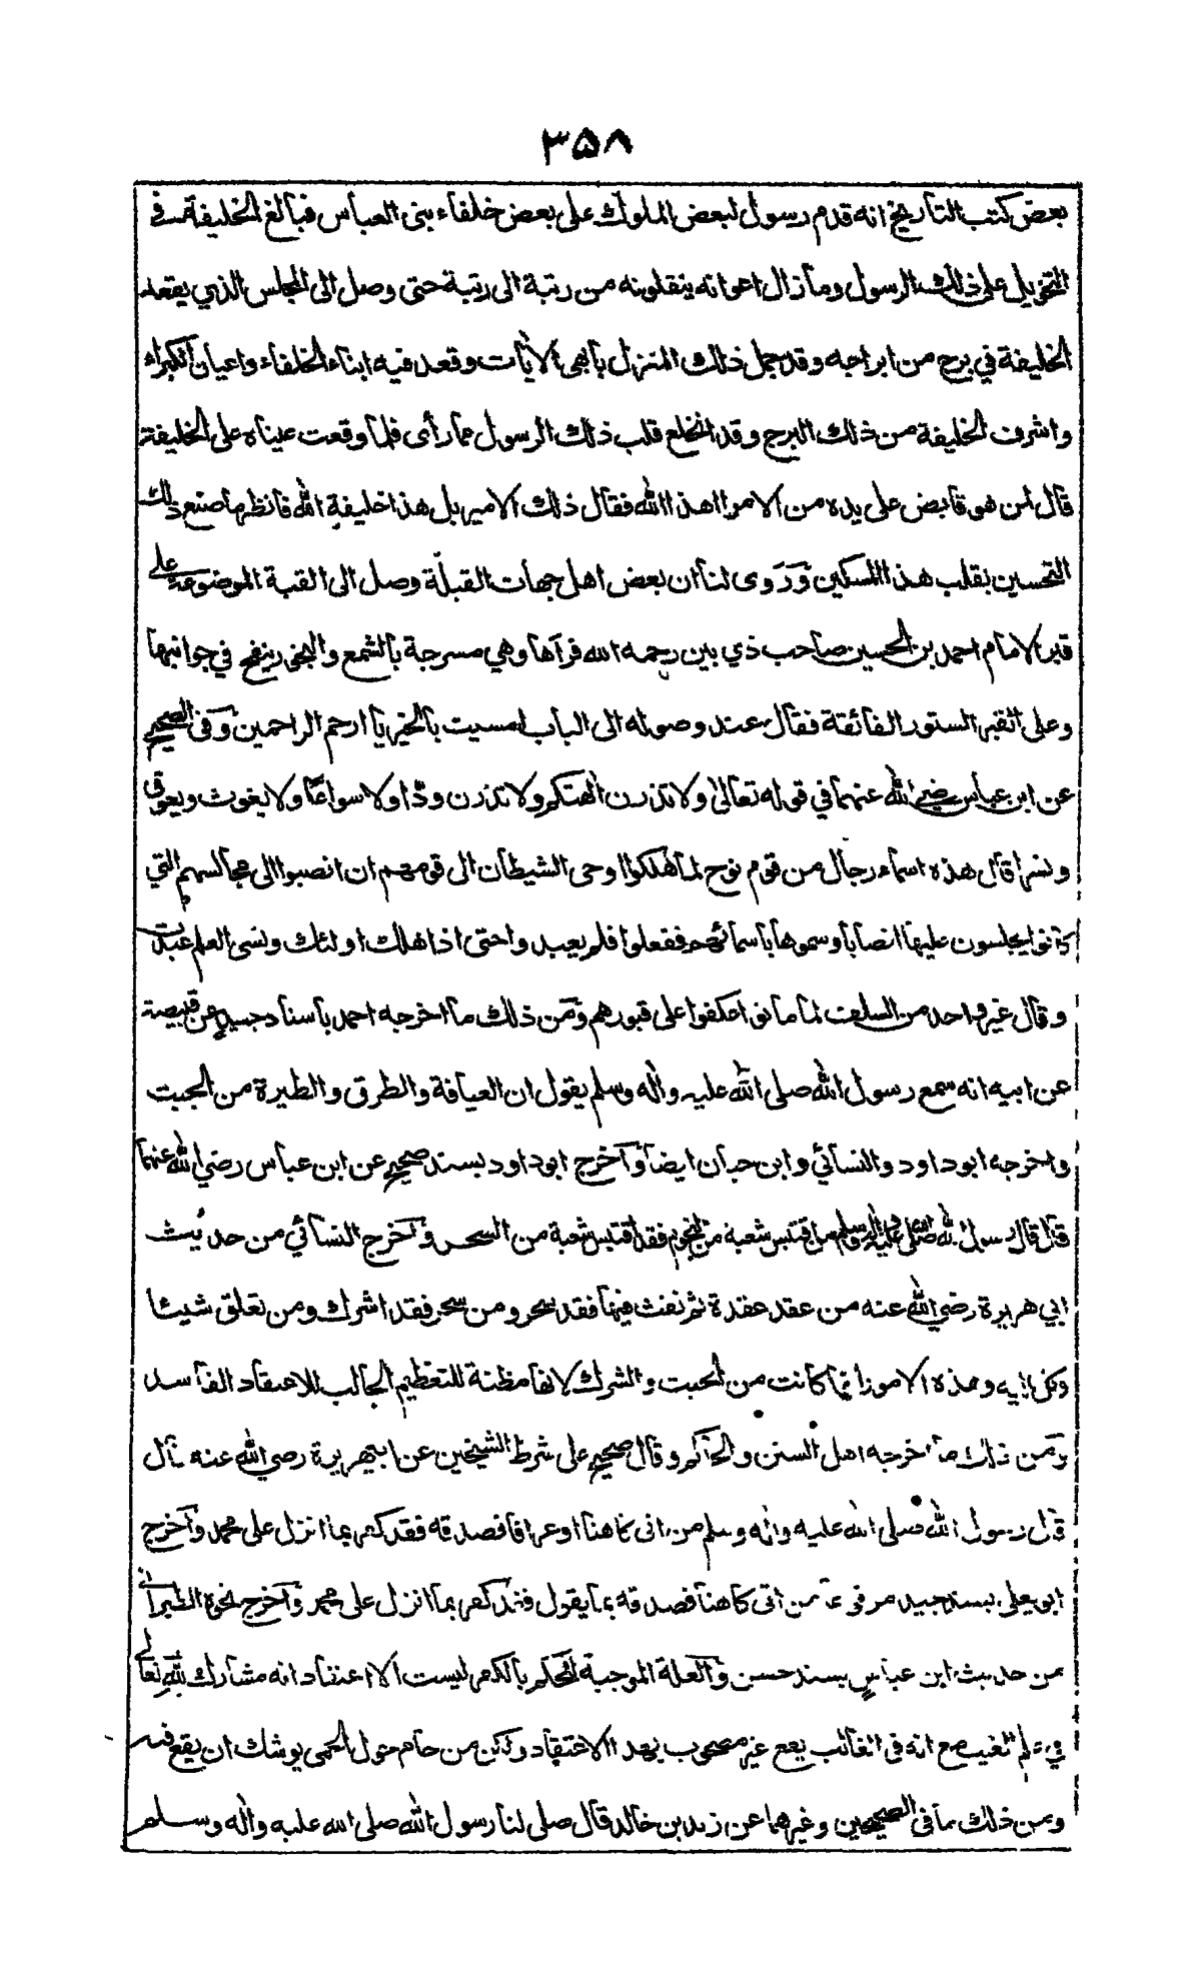 ۳۵۸
بعض كتب التاريخ انه قدم رسول لبعض الملوك على بعض خلفاء بنى العباس فبالغ الخليفة فى
التهويل على ذلك الرسول وما زال اعوانه ينقلونه من رتبة الى رتبة حتى وصل الى المجلس الذي يقعد
الخليفة في برج من ابراجه وقد جمل ذلك المنزل بابهى الآيات وقعد فيه ابناء الخلفاء واعيان الكبراء
واشرف الخليفة من ذلك البرج وقد انخلع قلب ذلك الرسول مما رأى فلما وقعت عيناه على الخليفة
قال لمن هو قابض على يده من الامراا هذا الله فقال ذلك الامير بل هذا خليفة الله فانظر ما صنع ذلك
التحسين بقلب هذا المسكين وَرَوى لنا ان بعض اهل جهات القبلة وصل الى القبة الموضوعة على
قبر الامام احمد بن الحسين صاحب ذي بين رحمه الله فرآها وهي مسرجة بالشمع والبخور ينفح في جوانبها
وعلى القبر الستور الفائقة فقال عند وصوله الى الباب امسيت بالخير يا ارحم الراحمين وَفى الصحيح
عن ابن عباس رضي الله عنهما في قوله تعالى ولا تذرن الهتكم ولا تذرن ودّا ولا سواعًا ولا يغوث ويعوق
ونسرا قال هذه اسماء رجال من قوم نوح لما هلكوا اوحى الشيطان الى قومهم ان انصبوا الى مجالسهم التي
كانوا يجلسون عليها انصابا وسموها باسمائهم ففعلوا فلم يعبدوا حتى اذا هلك اولئك ونسى العلم عبدت
وقال غير واحد من السلف لما ماتوا عكفوا على قبورهم وَمن ذلك ما اخرجه احمد باسناد جيد عن قبيصة
عن ابيه انه سمع رسول الله صلى الله عليه واله وسلم يقول ان العيافة والطرق والطيرة من الجبت
واخرجه ابوداود والنسائي وابن حبان ايضا وَاخرج ابوداود بسند صحيح عن ابن عباس رضي الله عنهما
قال قال رسول الله صلى الله عليه واله وسلم من اقتبس شعبة من النجوم فقد اقتبس شعبة من السحر وَاخرج النسائي من حديث
ابي هريرة رضي الله عنه من عقد عقدة ثم نفث فيها فقد سحر ومن سحر فقد اشرك ومن تعلق شيئا
وكل اليه وهذه الامور انما كانت من الجبت والشرك لانها مظنة للتعظيم الجالب للاعتقاد الفاسد
وَمن ذلك ما اخرجه اهل السنن والحاكم وقال صحيح على شرط الشيخين عن ابيهريرة رضي الله عنه قال
قال رسول الله صلى الله عليه واله وسلم من اتى كاهنا او عرافا فصدقه فقد كفر بما انزل على محمد وَاخرج
ابو يعلى بسند جيد مرفوعا من اتى كاهنا فصدقه بما يقول فقد كفر بما انزل على محمد وَاخرج نحوه الطبراني
من حديث ابن عباس بسند حسن وَالعلة الموجبة للحكم بالكفر ليست الا اعتقاد انه مشارك لله تعالى
في علم الغيب مع انه فى الغالب يقع غير مصحوب بهذا الاعتقاد ولكن من حام حول الحمى يوشك ان يقع فيه
ومن ذلك ما فى الصحيحين وغيرهما عن زيد بن خالد قال صلى لنا رسول الله صلى الله عليه واله وسلم